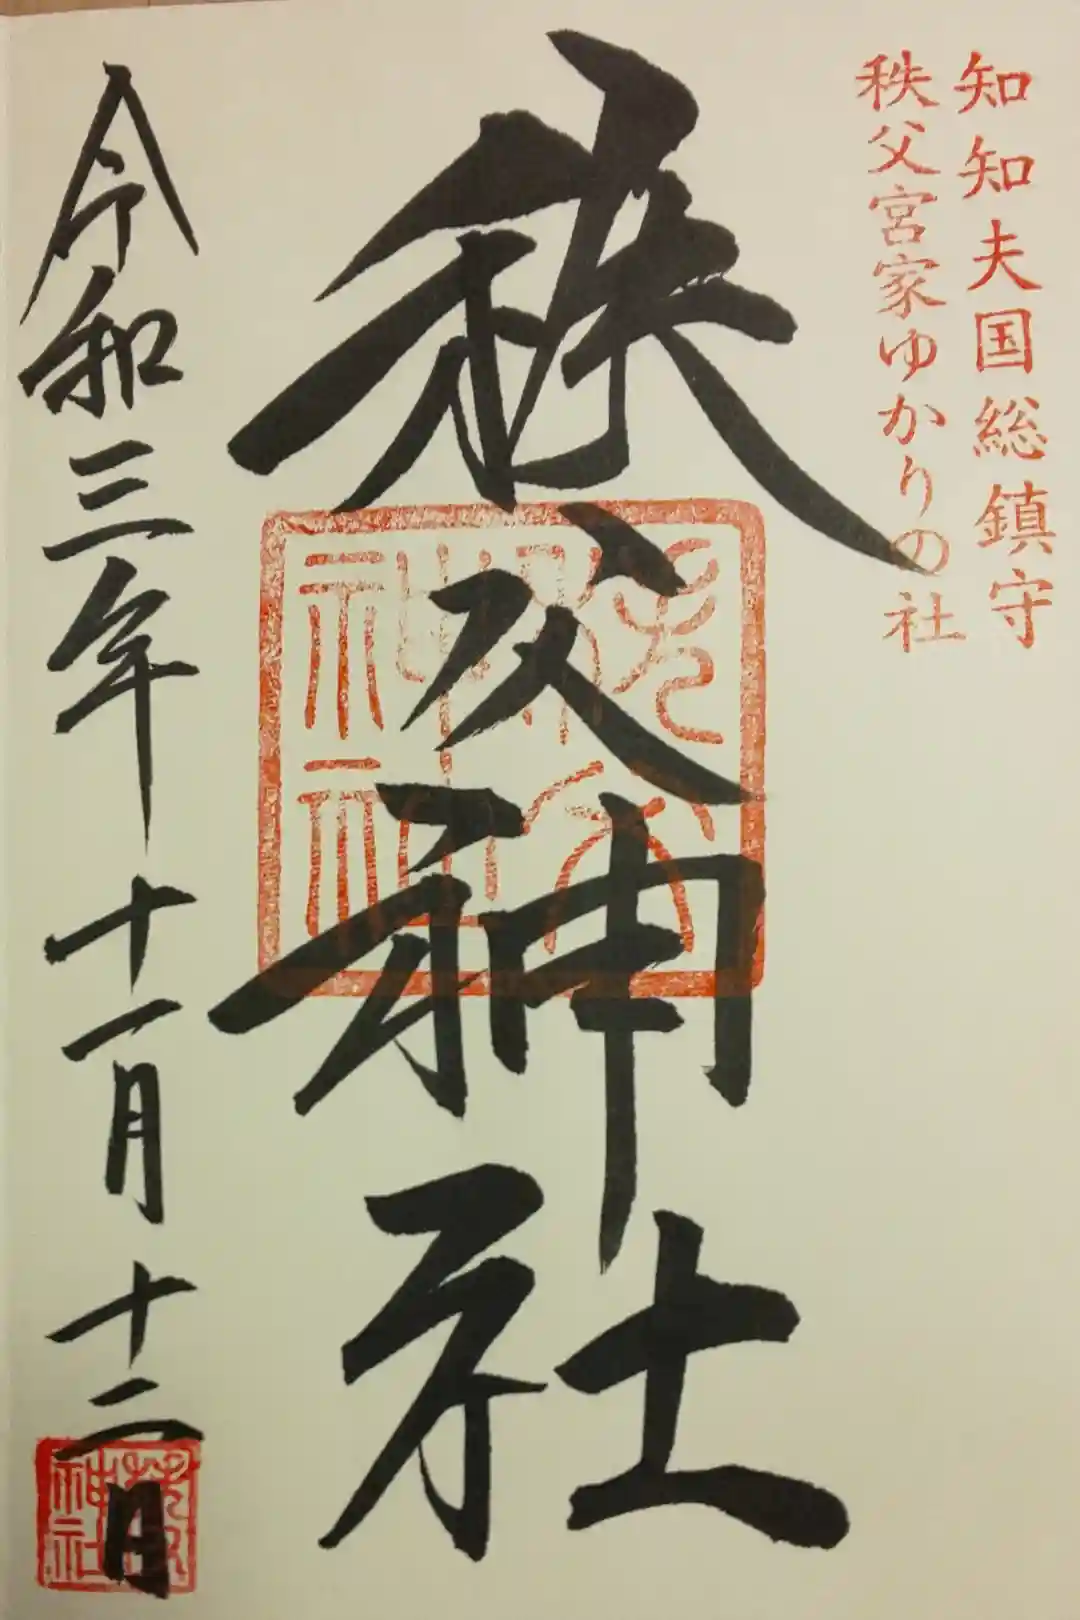 知知夫国総鎮守
秩父宮家ゆかりの社
秩父神社
秩父神社
令和三年十一月十二日